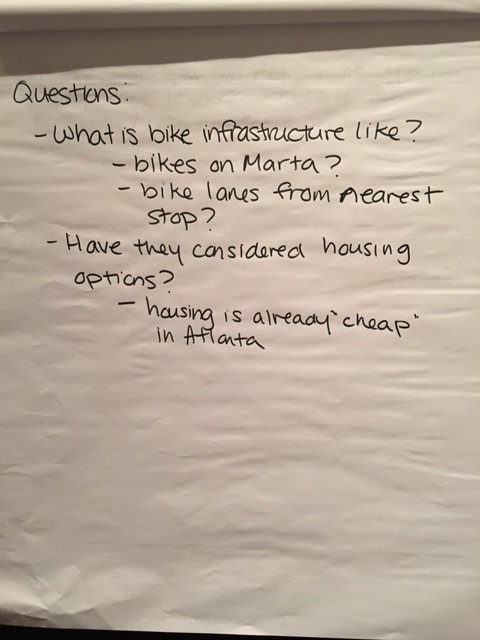 Questions:
- What is bike infrastructure like?
- bikes on Marta?
- bike lanes from nearest
stop?
- Have they considered housing
options?
- housing is already "cheap"
in Atlanta